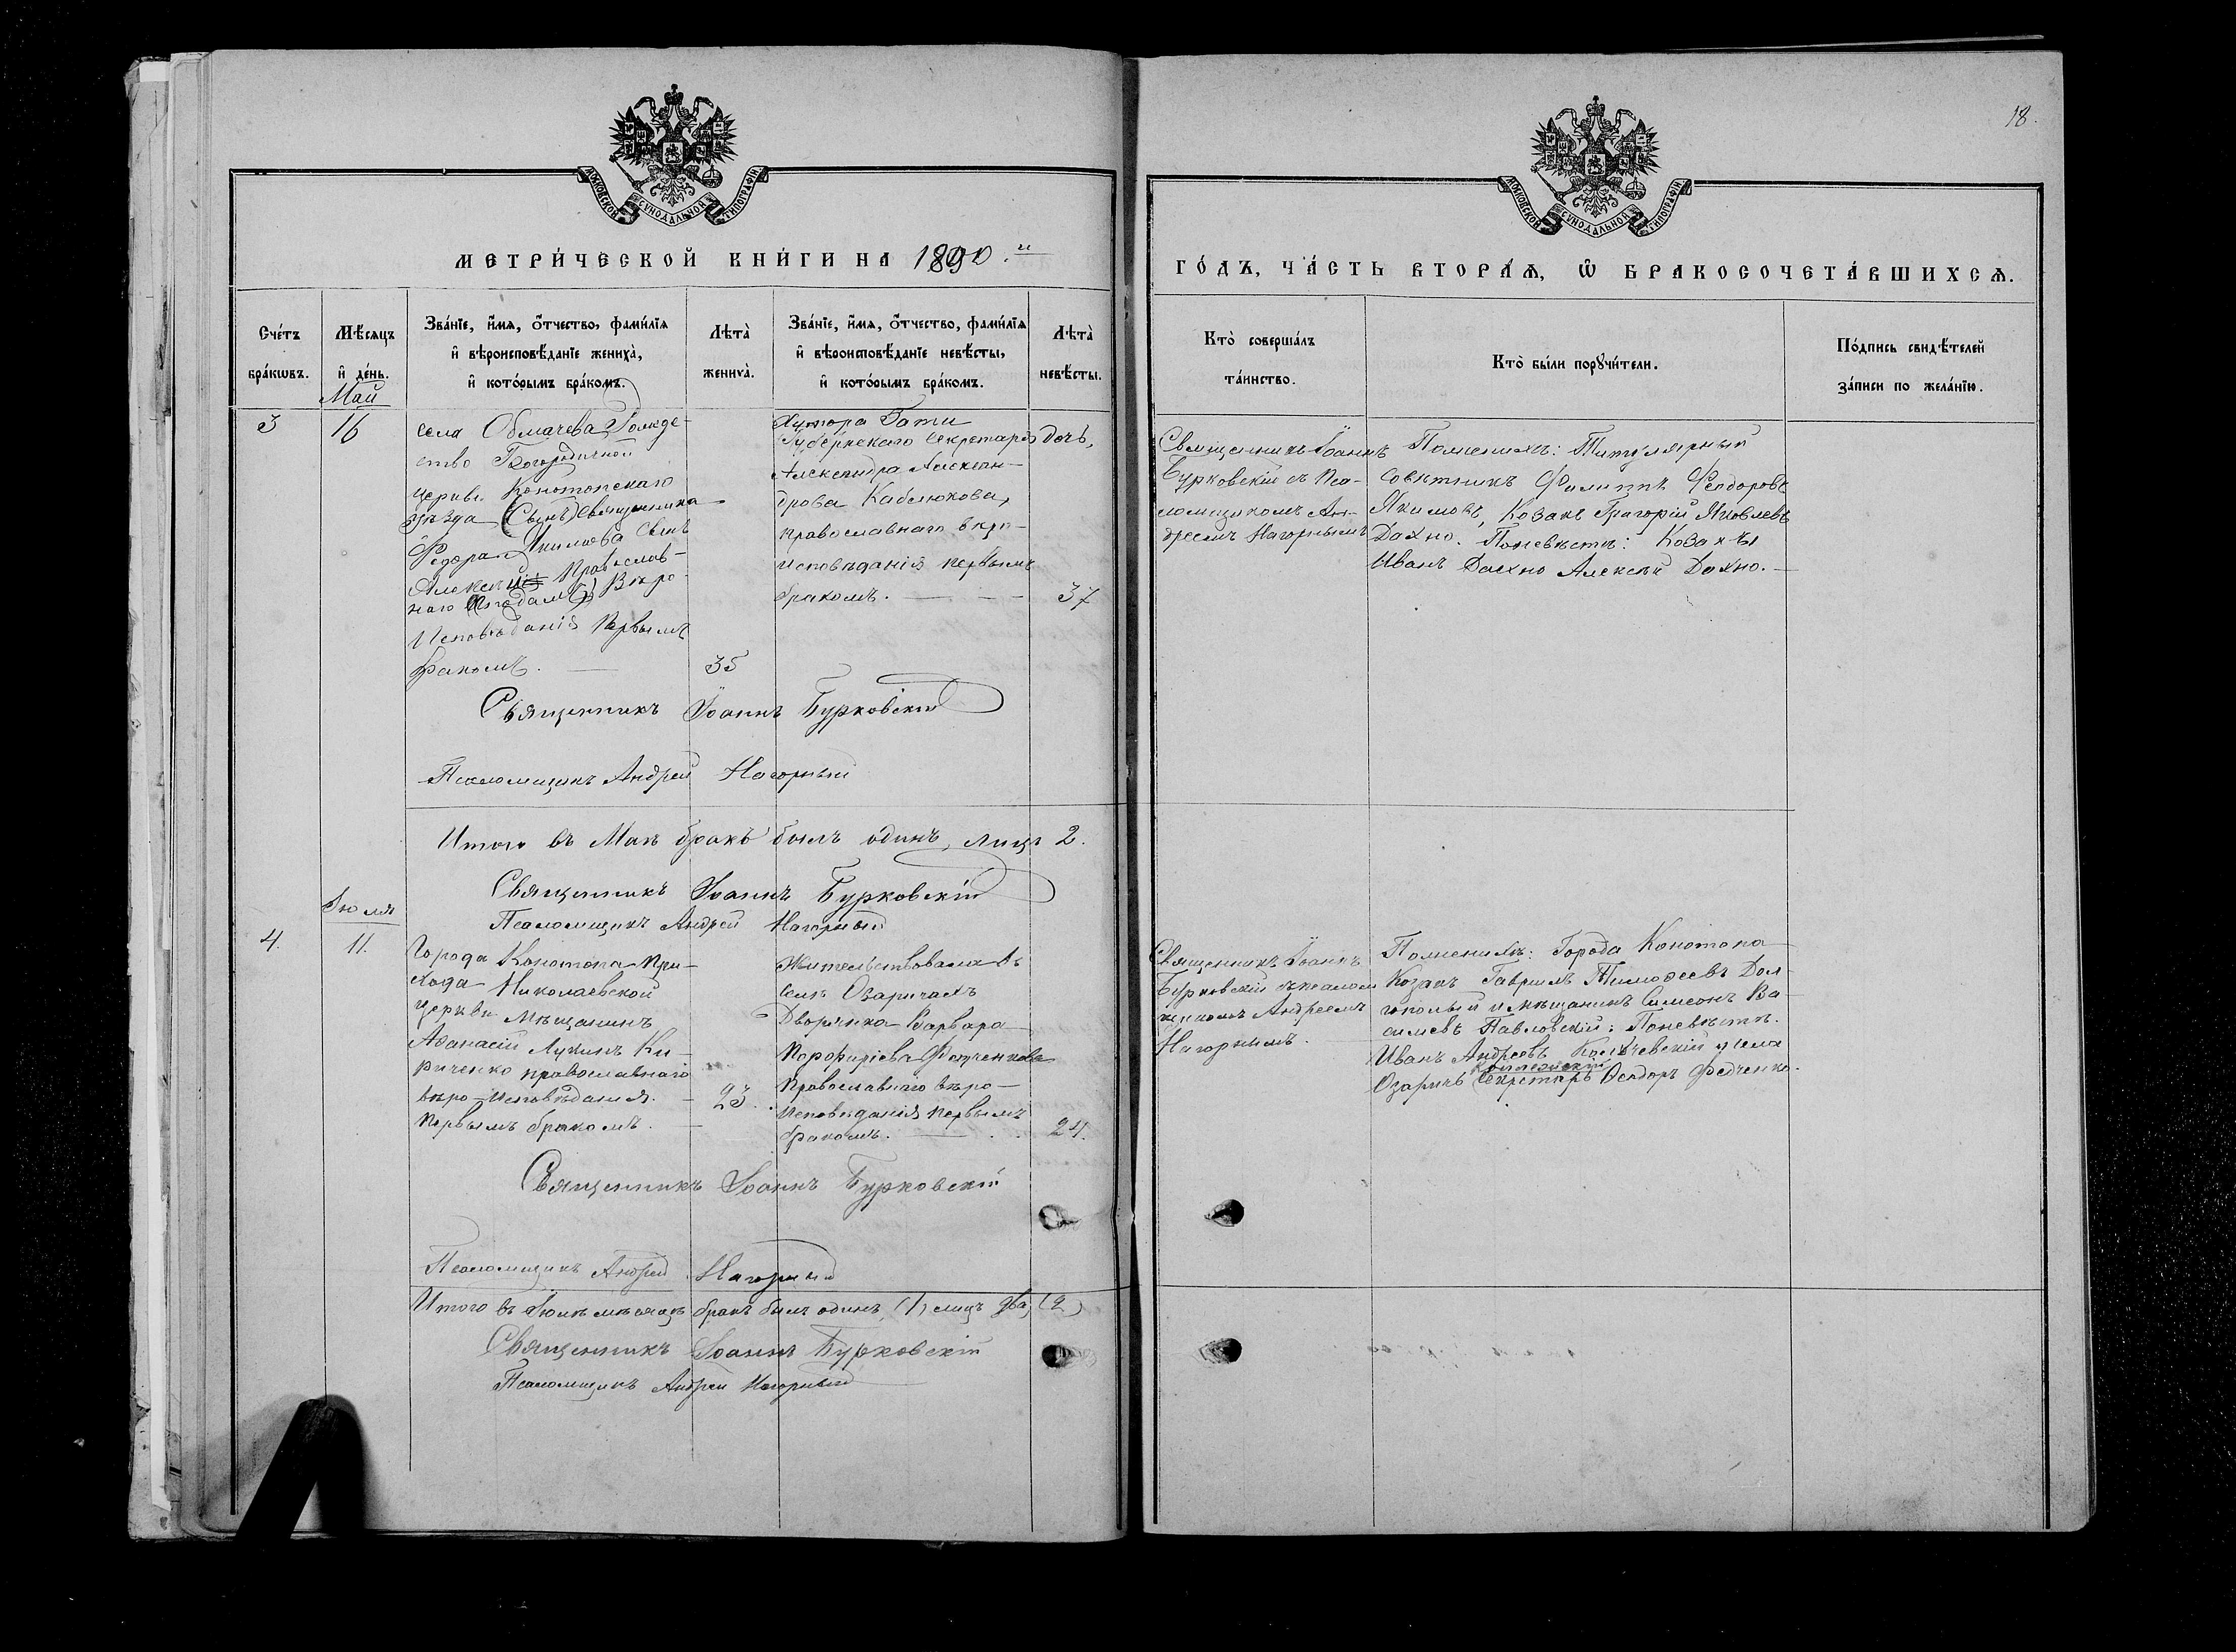 18.
МОСКОВСКОЙ СѴНОДАЛЬНОЙ ТИПОГРАФІИ
МОСКОВСКОЙ СѴНОДАЛЬНОЙ ТИПОГРАФІИ
МЕТРИ́ЧЕСКОЙ КНИ́ГИ НА 1890.
ГО́ДЪ, ЧА́СТЬ ВТОРА́Ѧ, Ѡ҆ БРАКОСОЧЕТА́ВШИХСѦ.
Сче́тъ
бра́кѡвъ.
Мѣ́сѧцъ
и҆ де́нь.
Зва́нїе, и҆́мѧ, ѻ҆́тчество, фами́лїѧ
и҆ вѣроисповѣ́данїе жениха̀,
и҆ кото́рымъ бра́комъ.
Лѣта̀
жениха̀.
Зва́нїе, и҆́мѧ, ѻ҆́тчество, фами́лїѧ
и҆ вѣроисповѣ́данїе невѣ́сты,
и҆ кото́рымъ бра́комъ.
Лѣта̀
невѣ́сты.
Кто̀ соверша́лъ
та́инство.
Кто̀ бы́ли порꙋчи́тели.
По́дпись свидѣ́телей
за́писи по жела́нїю.
Май
3
16
села Обмачева Рожде-
ство Богородичной
церкви Конотопскаго
уѣзда (Сынъ) священника
Федора Якимова Сынъ
Алексѣй Православ-
наго Вѣро
Исповѣданія Первымъ
бракомъ.
35
Хутора Гати
Губернскаго Секретаря дочь,
Александра Алексан-
дрова Каблюкова,
православнаго вѣро-
исповѣданія первымъ
бракомъ.
37
Священникъ Іоаннъ
Бурковскій съ Пса-
ломщикомъ Ан-
дреемъ Нагорнымъ
Поженихѣ: Титулярный
совѣтникъ Филиппъ Феодоровъ
Якимовъ, Козакъ Григорій Яковлевъ
Дахно. Поневѣстѣ: Козаки
Иванъ Дахно Алексѣй Дахно.
Священникъ Іоаннъ Бурковскій
Псаломщикъ Андрей Нагорный
Итого въ Маѣ бракъ былъ одинъ, лицъ 2.
Священникъ Іоаннъ Бурковскій
Псаломщикъ Андрей Нагорный
Іюля
4.
11.
Города Конотопа При-
хода Николаевской
Церкви Мѣщанинъ
Афанасій Лукинъ Ки-
риченко православнаго
вѣро-исповѣданія.
Первымъ бракомъ.
23.
Жительствовала въ
селѣ Озаричахъ
Дворянка Варвара
Порфиріева Федченкова
Православнаго вѣро-
Исповѣданія Первымъ
бракомъ.
24.
Священникъ Іоаннъ
Бурковскій съ псалом
щикомъ Андреемъ
Нагорнымъ.
Поженихѣ: Города Конотопа
Козакъ Гавріилъ Тимофеевъ Дол-
гополый и мѣщанинъ Симеонъ Ва-
силевъ Павловскій: Поневѣстѣ.
Иванъ Андреевъ
Озаричъ Секретарь Феодоръ Федченко.
Священникъ Іоаннъ Бурковскій
Псаломщикъ Андрей Нагорный
Итого въ Іюлѣ мѣсяцѣ бракъ былъ одинъ, (1) лицъ два, (2)
Священникъ Іоаннъ Бурковскій
Псаломщикъ Андрей Нагорный